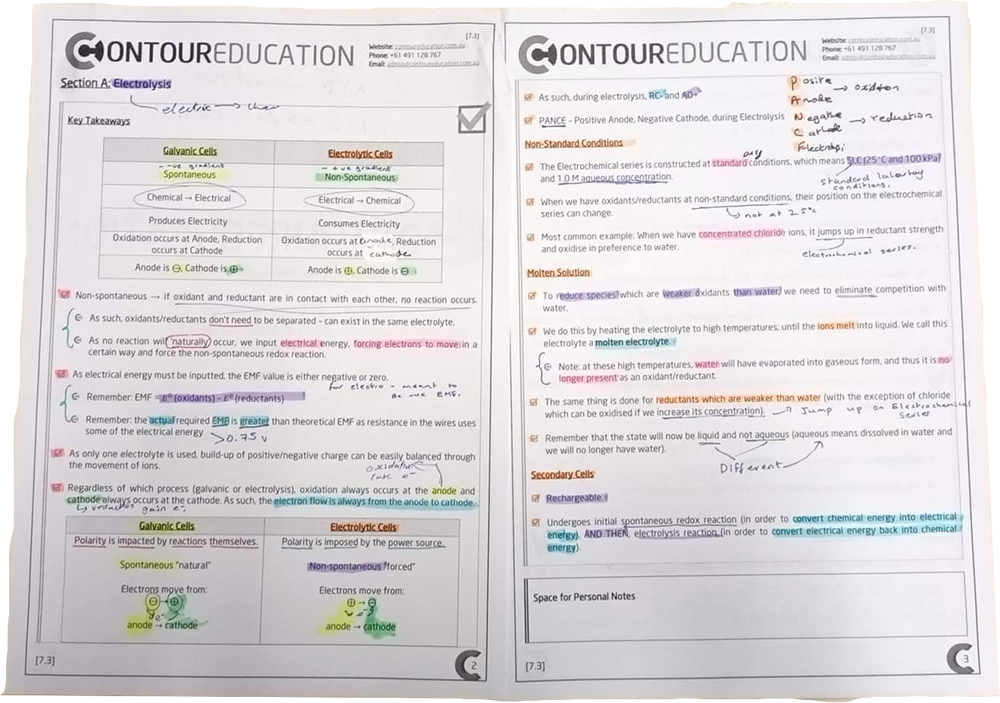 [7.3]
CONTOUREDUCATION
Website: contoureducation.com.au
Phone: +61 491 128 767
Email: admin@contoureducation.com.au
Section A: Electrolysis
electric → chem
Key Takeaways
Galvanic Cells
Electrolytic Cells
-ve gradient
+ve gradient
Spontaneous
Non-Spontaneous
Chemical → Electrical
Electrical → Chemical
Produces Electricity
Consumes Electricity
Oxidation occurs at Anode, Reduction
occurs at Cathode
Oxidation occurs at anode, Reduction
occurs at cathode
Anode is ⊖, Cathode is ⊕
Anode is ⊕, Cathode is ⊖
Non-spontaneous → if oxidant and reductant are in contact with each other, no reaction occurs.
As such, oxidants/reductants don't need to be separated - can exist in the same electrolyte.
As no reaction will 'naturally' occur, we input electrical energy, forcing electrons to move in a
certain way and force the non-spontaneous redox reaction.
As electrical energy must be inputted, the EMF value is either negative or zero.
for electro - meant to
-ve EMF.
Remember: EMF = E⁰(oxidants) - E⁰(reductants)
Remember: the actual required EMF is greater than theoretical EMF as resistance in the wires uses
some of the electrical energy
>0.75 v
As only one electrolyte is used, build-up of positive/negative charge can be easily balanced through
the movement of ions.
lose e-
Regardless of which process (galvanic or electrolysis), oxidation always occurs at the anode and
cathode always occurs at the cathode. As such, the electron flow is always from the anode to cathode.
gain e-
Galvanic Cells
Electrolytic Cells
Polarity is impacted by reactions themselves.
Polarity is imposed by the power source.
Spontaneous "natural"
Non-spontaneous "forced"
Electrons move from:
Electrons move from:
⊖→⊕
⊕→⊖
e-
e-
anode → cathode
anode → cathode
[7.3]
2
[7.3]
CONTOUREDUCATION
Website: contoureducation.com.au
Phone: +61 491 128 767
Email: admin@contoureducation.com.au
As such, during electrolysis, RC- and AO+
PANCE - Positive Anode, Negative Cathode, during Electrolysis
Anode
Negative → reduction
Non-Standard Conditions
only
The Electrochemical series is constructed at standard conditions, which means SLC (25°C and 100 kPa)
and 1.0 M aqueous concentration.
conditions.
When we have oxidants/reductants at non-standard conditions, their position on the electrochemical
series can change.
not at 25°c
Most common example: When we have concentrated chloride ions, it jumps up in reductant strength
and oxidise in preference to water.
electrochemical series.
Molten Solution
To reduce species which are weaker oxidants than water, we need to eliminate competition with
water.
We do this by heating the electrolyte to high temperatures; until the ions melt into liquid. We call this
electrolyte a molten electrolyte.
Note: at these high temperatures, water will have evaporated into gaseous form, and thus it is no
longer present as an oxidant/reductant.
The same thing is done for reductants which are weaker than water (with the exception of chloride
which can be oxidised if we increase its concentration).
→ Jump up on Electrochemical
series
Remember that the state will now be liquid and not aqueous (aqueous means dissolved in water and
we will no longer have water).
Different
Secondary Cells
Rechargeable.
Undergoes initial spontaneous redox reaction (in order to convert chemical energy into electrical
energy). AND THEN, electrolysis reaction (in order to convert electrical energy back into chemical
energy).
Space for Personal Notes
[7.3]
3